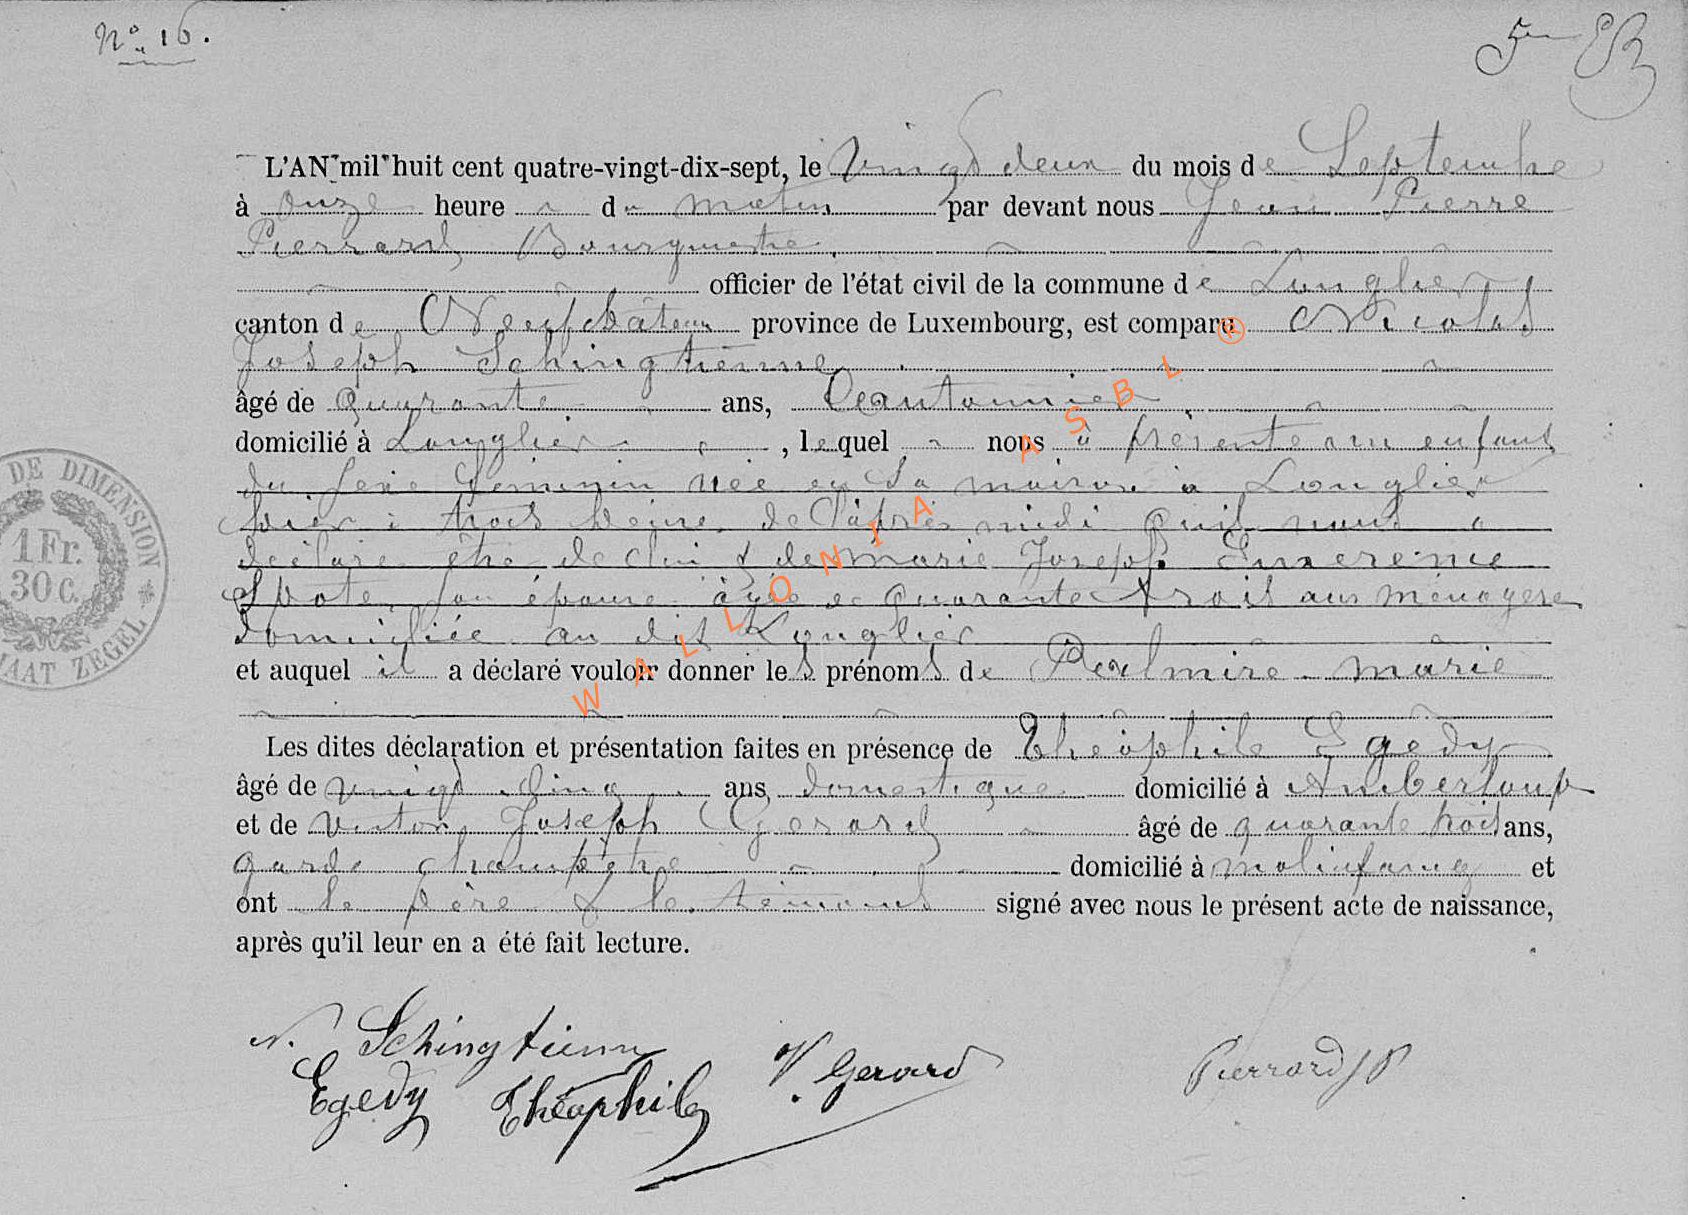 N° 16.
L'AN mil huit cent quatre-vingt-dix-sept, le vingt deux du mois de Septembre
à onze heure du matin par devant nous Jean Pierre
Pierrard, Bourgmestre
officier de l'état civil de la commune de Longlier
canton de Neufchâteau province de Luxembourg, est comparu Nicolas
Joseph Schingtienne
âgé de quarante ans, Cantonnier
domicilié à Longlier, lequel nous a présenté un enfant
du sexe féminin née en sa maison à Longlier
hier à trois heures de l'après midi qu'il nous a
déclaré être de lui & de Marie Joseph
son épouse âgée de quarante trois ans ménagère
domiciliée au dit Longlier
et auquel il a déclaré vouloir donner les prénoms de Palmire Marie
Les dites déclaration et présentation faites en présence de Théophile Egedy
âgé de vingt cinq ans, domestique domicilié à Amberloup
et de Victor Joseph Gerard âgé de quarante trois ans,
garde champêtre domicilié à Molinfaing et
ont le père & les témoins signé avec nous le présent acte de naissance,
après qu'il leur en a été fait lecture.
N. Schingtienne
Egedy Théophile
V. Gerard
Pierrard JP
DE DIMENSION
1 Fr.
30 c.
MAAT ZEGEL
WALLONIA ASBL ®